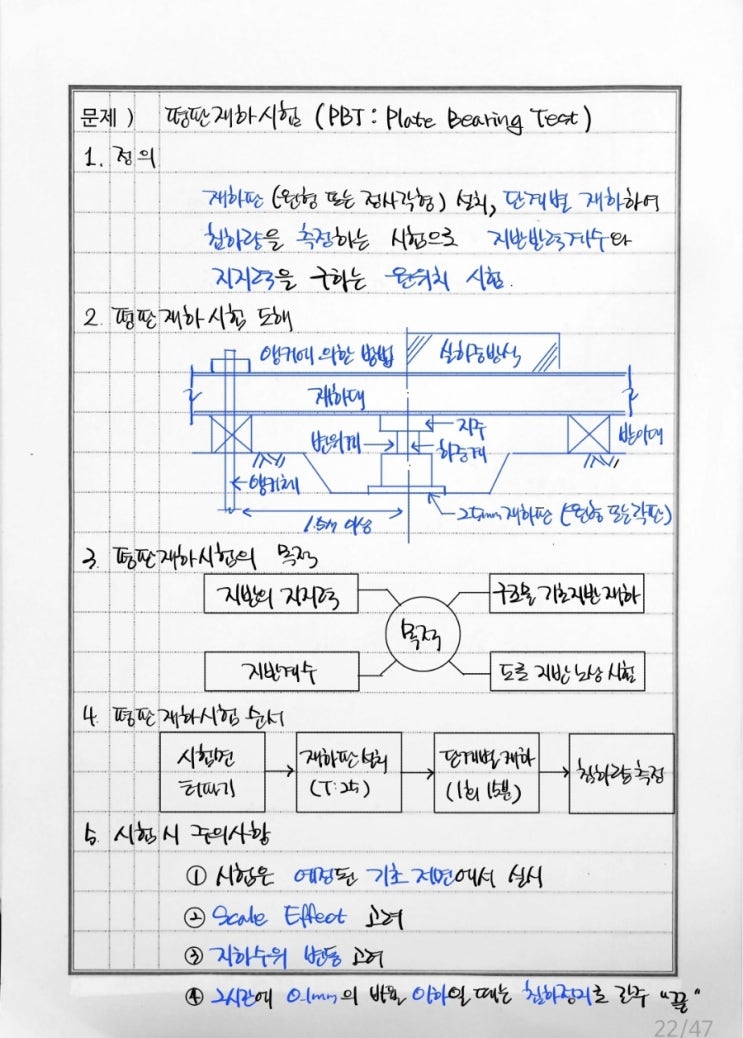 문제 ) 평판재하시험 (PBT : Plate Bearing Test)
1. 정의
재하판 (원형 또는 정사각형) 설치, 단계별 재하하여
침하량을 측정하는 시험으로 지반반력계수와
지지력을 구하는 원위치 시험.
2. 평판재하시험 도해
앵커에 의한 방법 실하중방식
재하대
지주
변위계 하중계 받이대
앵커체
25mm 재하판 (원형 또는 각판)
1.5m 이상
3. 평판재하시험의 목적
지반의 지지력 구조물 기초지반 재하
목적
지반계수 도로 지반 노상 시험
4. 평판재하시험 순서
시험면 재하판 설치 단계별 재하 침하량 측정
터파기 (T:25) (1회 15분)
5. 시험 시 주의사항
① 시험은 예정된 기초 저면에서 실시
② Scale Effect 고려
③ 지하수위 변동 고려
④ 2시간에 0.1mm의 비율 이하일 때는 침하정지로 간주 "끝"
22/47